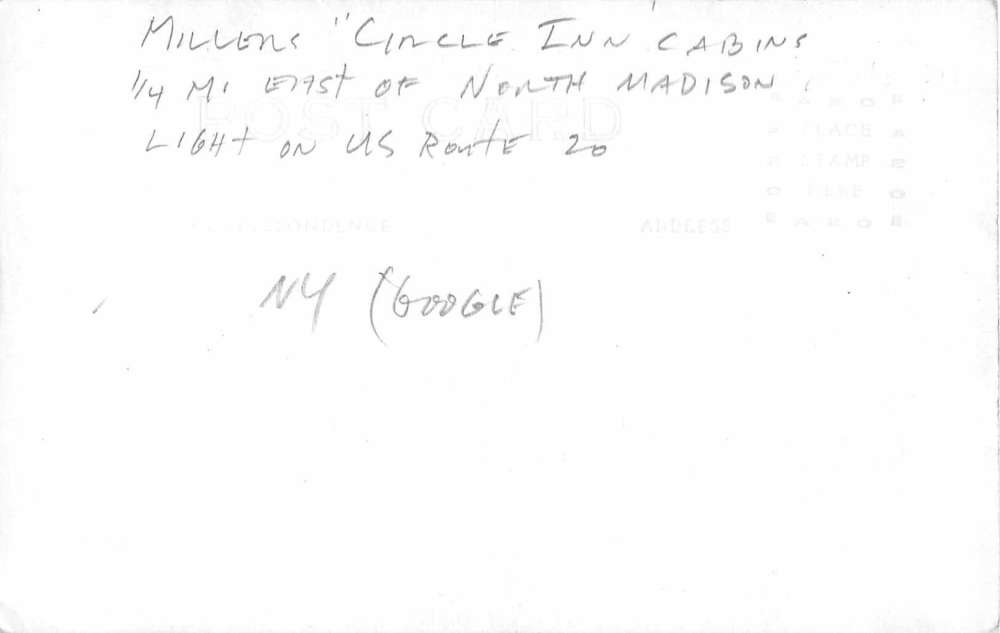 MILLERS "CIRCLE INN CABINS
1/4 MI EAST OF NORTH MADISON
POST CARD
LIGHT ON US ROUTE 20
AZO
PLACE
STAMP
HERE
CORRESPONDENCE ADDRESS
AZO
NY (GOOGLE)